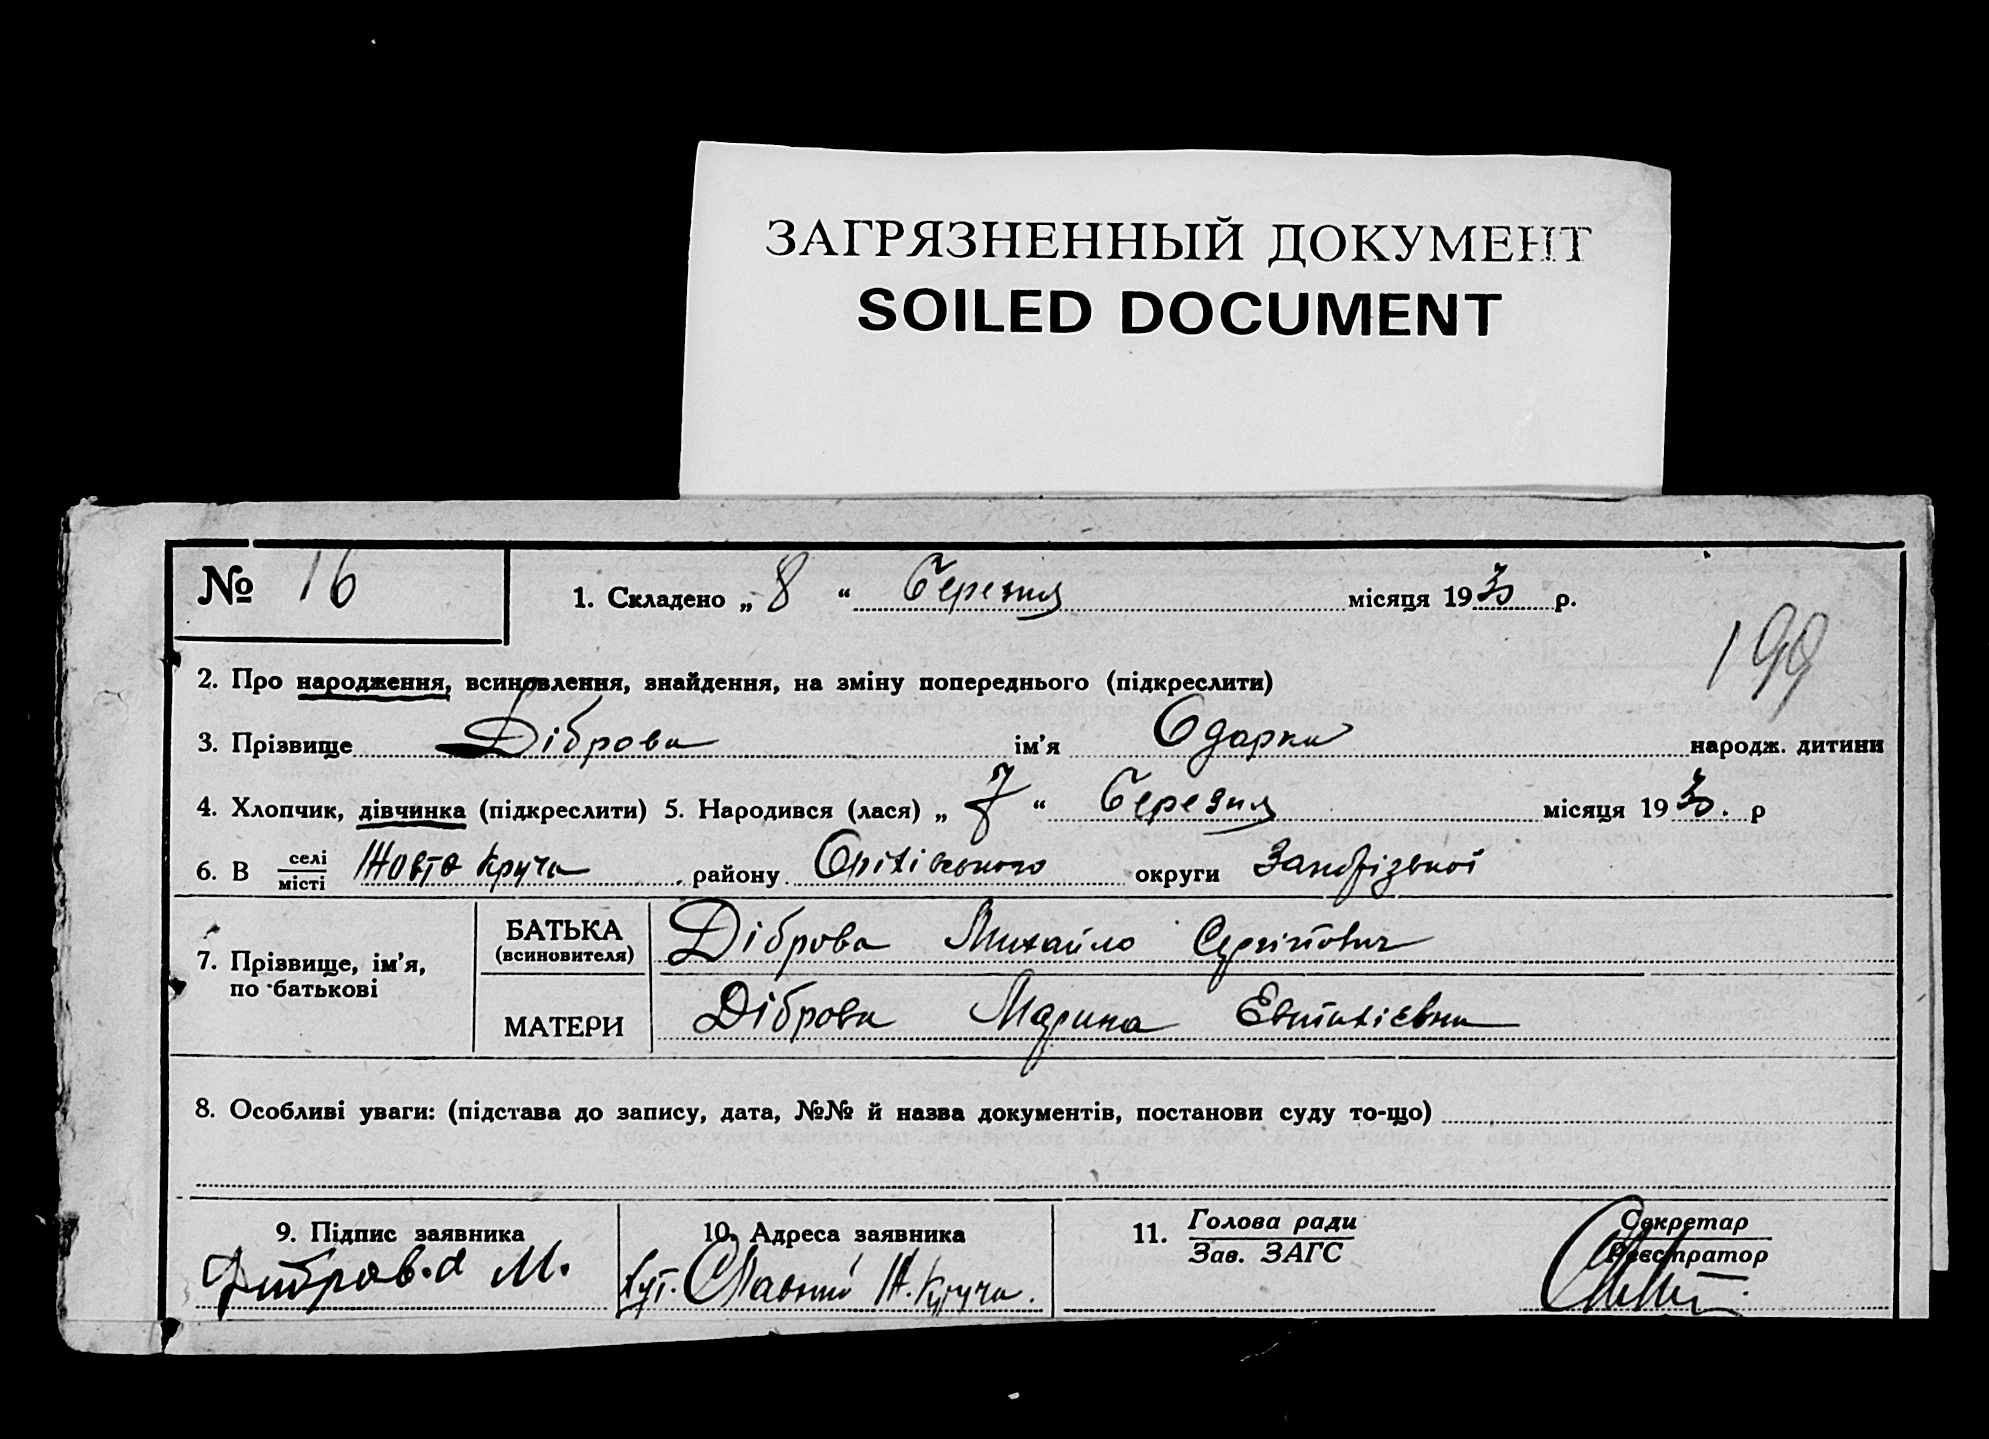 ЗАГРЯЗНЕННЫЙ ДОКУМЕНТ
SOILED DOCUMENT
№ 16
1. Складено „ 8 “ Березня місяця 1930 р.
199
2. Про народження, всиновлення, знайдення, на зміну попереднього (підкреслити)
3. Прізвище Діброва ім'я Одарка народж. дитини
4. Хлопчик, дівчинка (підкреслити) 5. Народився (лася) „ 7 “ Березня місяця 1930. р
6. В селі місті Жовта Круча району Оріхівського округи Запорізької
7. Прізвище, ім'я, по батькові
БАТЬКА (всиновителя) Діброва Михайло Сергійович
МАТЕРИ Діброва Марина
8. Особливі уваги: (підстава до запису, дата, №№ й назва документів, постанови суду то-що)
9. Підпис заявника
Діброва М.
10. Адреса заявника
Хут. Ж. Круча.
11. Голова ради
Зав. ЗАГС
Секретар
Реєстратор